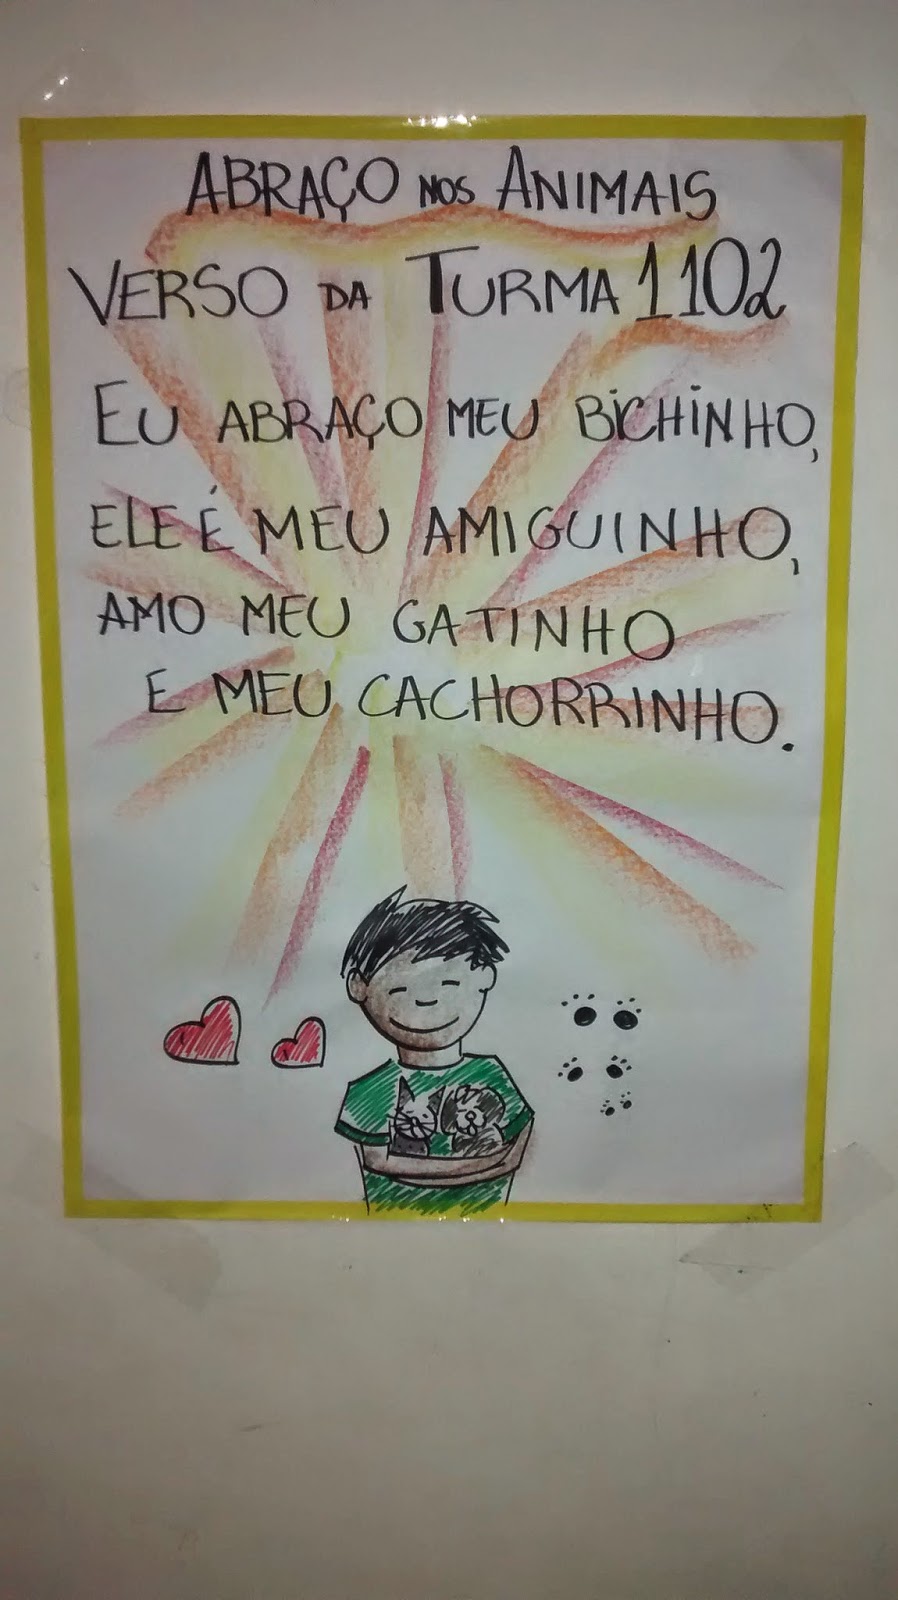 ABRAÇO NOS ANIMAIS
VERSO DA TURMA 1102
EU ABRAÇO MEU BICHINHO,
ELE É MEU AMIGUINHO,
AMO MEU GATINHO
E MEU CACHORRINHO.